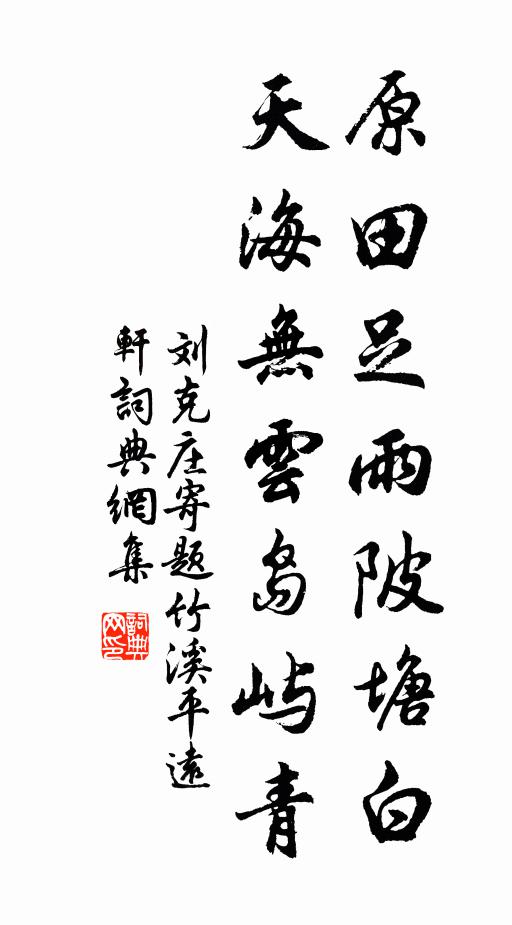 原田足雨陂塘白
天海無雲岛屿青
刘克庄寄题竹溪平遠
軒詞典網集
詞典网印